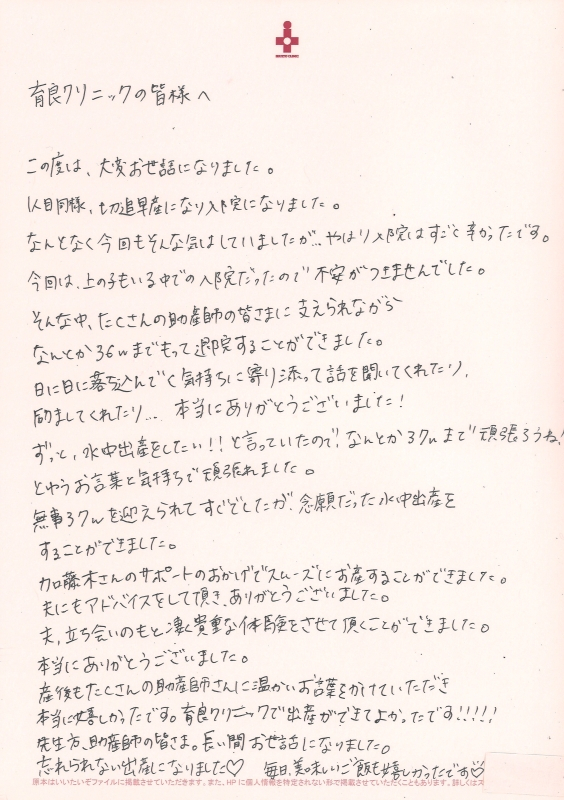 育良クリニックの皆様へ
この度は、大変お世話になりました。
1人目同様、切迫早産になり入院になりました。
なんとなく今回もそんな気はしていましたが…やはり入院はすごく辛かったです。
今回は、上の子もいる中での入院だったので不安がつきませんでした。
そんな中、たくさんの助産師の皆さまに支えられながら
なんとか36wまでもって退院することができました。
日に日に落ち込んでく気持ちに寄り添って話を聞いてくれたり、
励ましてくれたり… 本当にありがとうございました！
ずっと、水中出産をしたい！！と言っていたので、なんとか37wまで頑張ろうね！
とゆうお言葉と気持ちで頑張れました。
無事37wを迎えられてすぐでしたが、念願だった水中出産を
することができました。
加藤木さんのサポートのおかげでスムーズにお産することができました。
夫にもアドバイスをして頂き、ありがとうございました。
夫、立ち会いのもと凄く貴重な体験をさせて頂くことができました。
本当にありがとうございました。
産後もたくさんの助産師さんに温かいお言葉をかけていただき
本当に嬉しかったです。育良クリニックで出産ができてよかったです！！！！！
先生方、助産師の皆さま。長い間お世話になりました。
忘れられない出産になりました♡ 毎日、美味しいご飯も嬉しかったです♡
原本はいいたいぞファイルに掲載させていただきます。また、HPに個人情報を特定されない形で掲載させていただくこともあります。詳しくはス